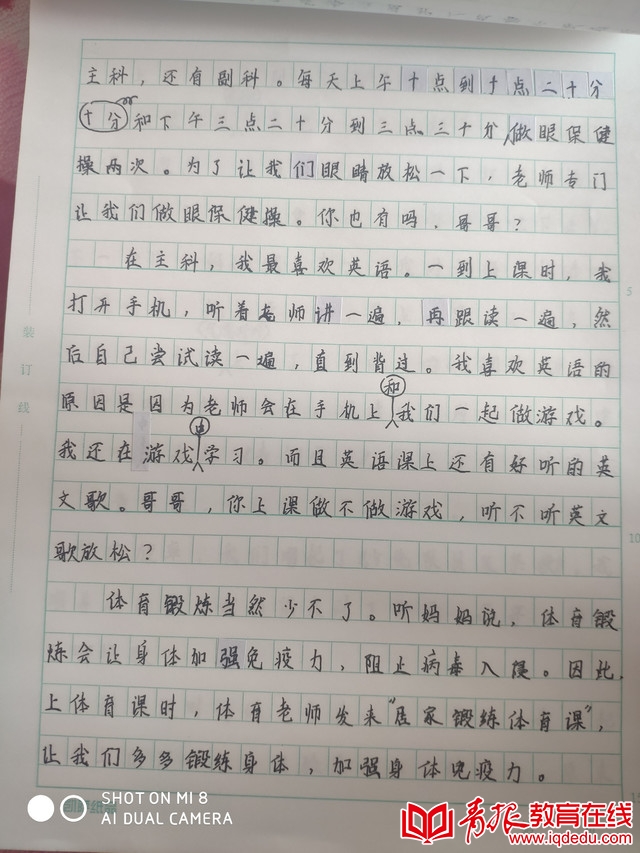 主科，还有副科。每天上午十点到十点二十分
十分和下午三点二十分到三点三十分，做眼保健
操两次。为了让我们眼睛放松一下，老师专门
让我们做眼保健操。你也有吗，哥哥？
在主科，我最喜欢英语。一到上课时，我
打开手机，听着老师讲一遍，再跟读一遍，然
后自己尝试读一遍，直到背过。我喜欢英语的
原因是因为老师会在手机上和我们一起做游戏。
我还在游戏中学习。而且英语课上还有好听的英
文歌。哥哥，你上课做不做游戏，听不听英文
歌放松？
体育锻炼当然少不了。听妈妈说，体育锻
炼会让身体加强免疫力，阻止病毒入侵。因此，
上体育课时，体育老师发来“居家锻练体育课”，
让我们多多锻练身体，加强身体免疫力。
装订线
5
10
SHOT ON MI 8
AI DUAL CAMERA
青报教育在线
www.iqdedu.com